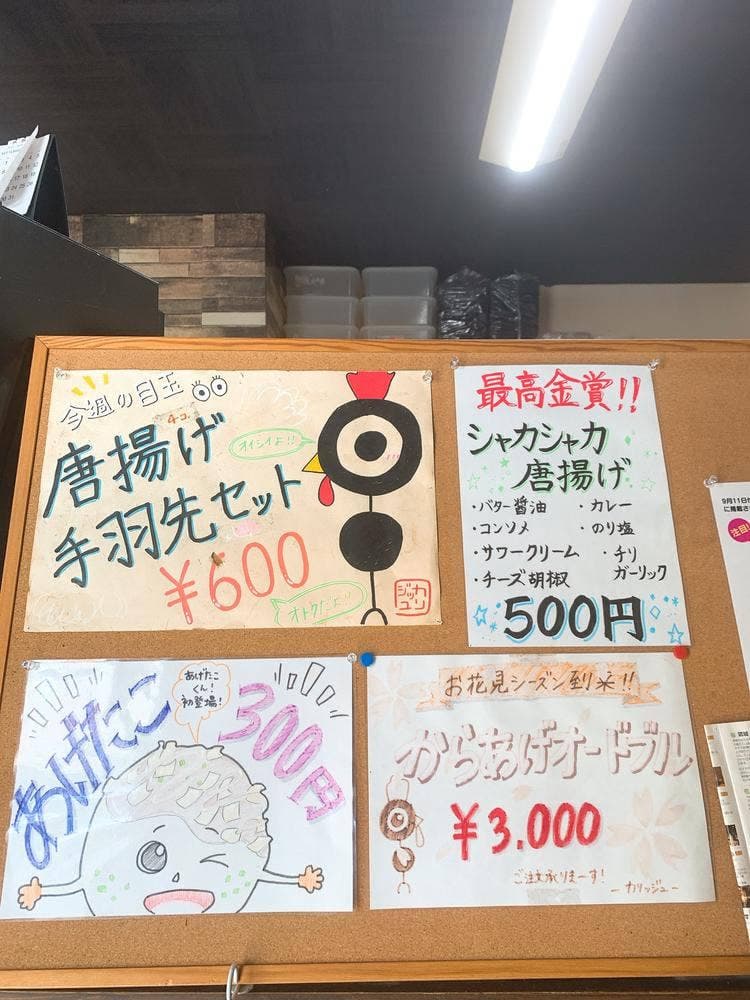 今週の目玉
4コ
唐揚げ
手羽先セット
¥600
オイシイよ!!
オトクだよ!!
カリッジュー
最高金賞!!
シャカシャカ
唐揚げ
・バター醤油
・カレー
・コンソメ
・のり塩
・サワークリーム
・チリ
ガーリック
・チーズ胡椒
500円
あげたこ
あげたこ
くん!
初登場!
300円
お花見シーズン到来!!
からあげオードブル
¥3.000
ご注文承りまーす!
ーカリッジューー
9月11日
に掲載さ
注目!